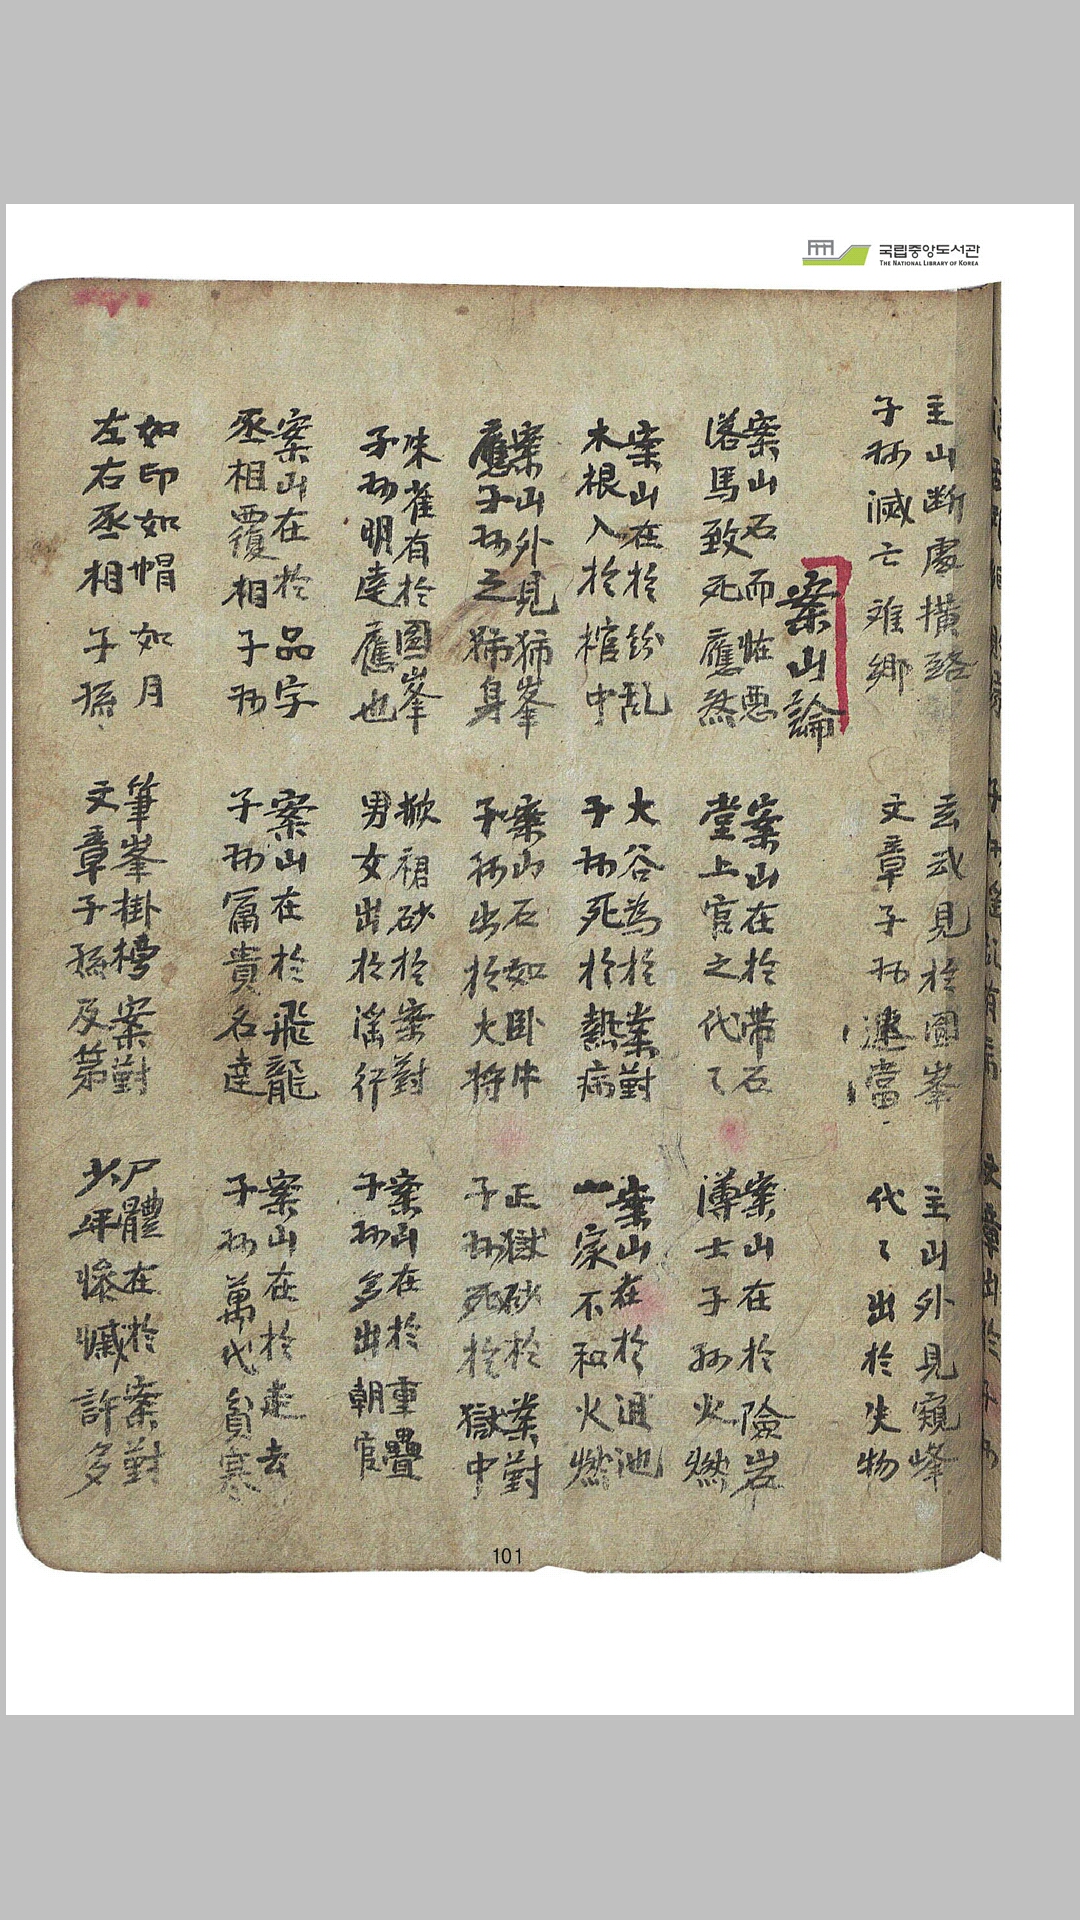 국립중앙도서관
THE NATIONAL LIBRARY OF KOREA
主山断處横路
子孫滅亡难郷
玄武見於圓峯
文章子孫連當
主山外見窺峰
代々出於失物
案山論
案山石而怪悪
落馬致死應煞
案山在於帶石
堂上官之代々
案山在於險岩
溥士子孫火燃
案山在於紛乱
木根入於棺中
大谷為於業對
子孫死於熱病
案山在於沮池
一家不和火燃
案山外見狮峯
應子孫之狮身
案山石如卧牛
子孫出於大將
正獄砂於業對
子孫死於獄中
朱雀有於圓峯
子孫明達應也
掀裙砂於案對
男女出於滛行
案山在於重疊
子孫多出朝官
案山在於品字
丞相覆相子孫
案山在於飛龍
子孫富貴名達
案山在於走去
子孫萬代貧寒
如印如帽如月
左右丞相子孫
筆峯掛榜案對
文章子孫及第
尸體在於案對
少年慘慽許多
101